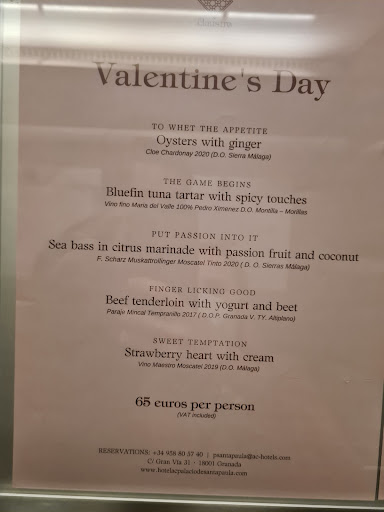 claustro
Valentine's Day
TO WHET THE APPETITE
Oysters with ginger
Cloe Chardonay 2020 (D.O. Sierra Málaga)
THE GAME BEGINS
Bluefin tuna tartar with spicy touches
Vino fino Maria del Valle 100% Pedro Ximenez D.O. Montilla – Morillas
PUT PASSION INTO IT
Sea bass in citrus marinade with passion fruit and coconut
F. Scharz Muskattrollinger Moscatel Tinto 2020 ( D. O. Sierras Málaga)
FINGER LICKING GOOD
Beef tenderloin with yogurt and beet
Paraje Mincal Tempranillo 2017 ( D.O.P. Granada V. TY. Altiplano)
SWEET TEMPTATION
Strawberry heart with cream
Vino Maestro Moscatel 2019 (D.O. Málaga)
65 euros per person
(VAT included)
RESERVATIONS: +34 958 80 57 40 | psantapaula@ac-hotels.com
C/ Gran Vía 31 · 18001 Granada
www.hotelacpalaciodesantapaula.com